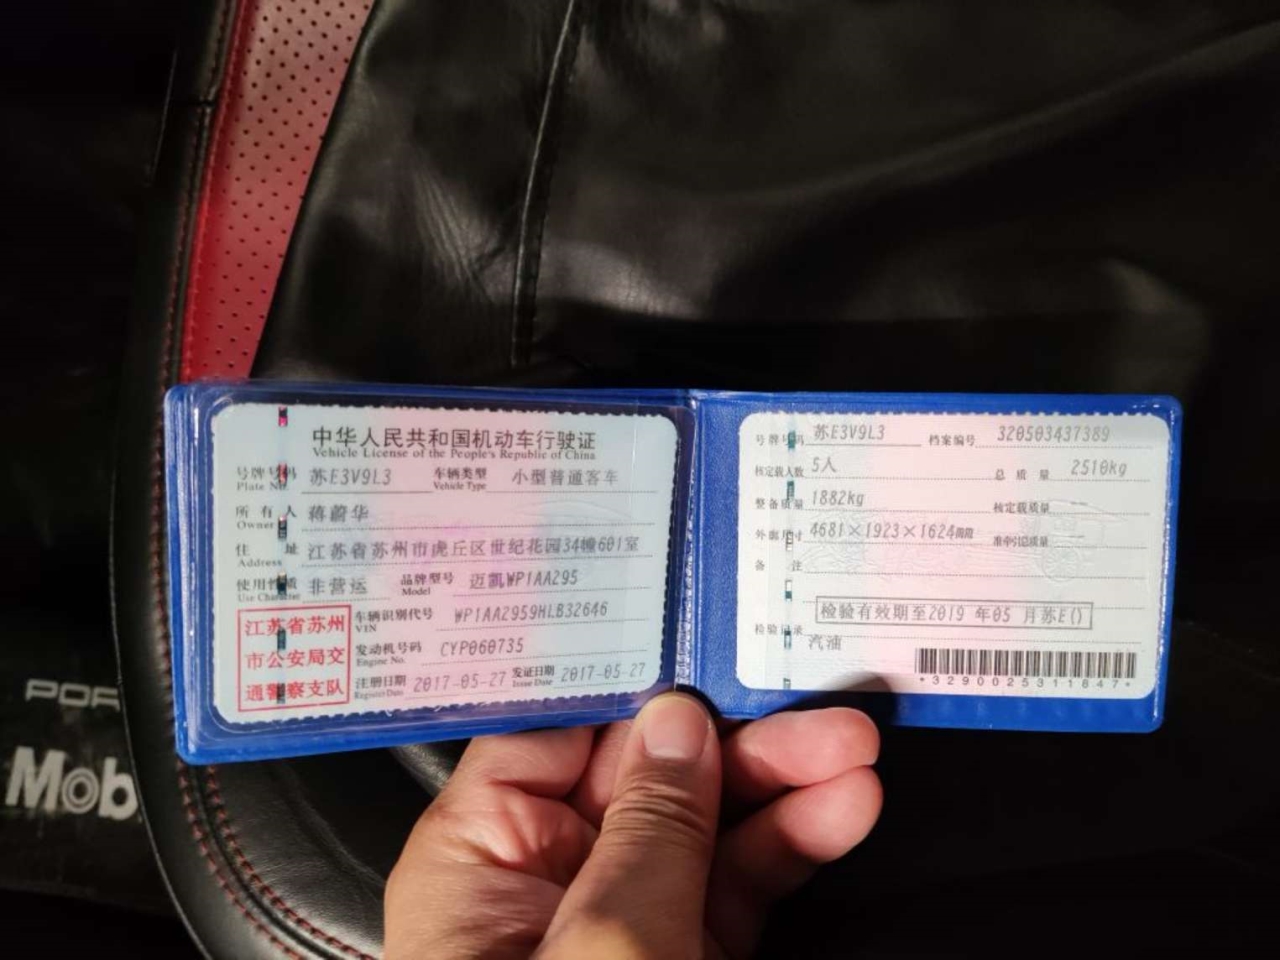 中华人民共和国机动车行驶证
Vehicle License of the People's Republic of China
号牌号码 苏E3V9L3 车辆类型 小型普通客车
Plate No. Vehicle Type
所有人 蒋蔚华
Owner
住址 江苏省苏州市虎丘区世纪花园34幢601室
Address
使用性质 非营运 品牌型号 迈凯WP1AA295
Use Character Model
江苏省苏州
市公安局交
通警察支队
车辆识别代号 WP1AA2959HLB32646
VIN
发动机号码 CYP060735
Engine No.
注册日期 2017-05-27 发证日期 2017-05-27
Register Date Issue Date
号牌号码 苏E3V9L3 档案编号 320503437389
核定载人数 5人 总质量 2510kg
整备质量 1882kg 核定载质量 --
外廓尺寸 4681×1923×1624mm 准牵引总质量 --
备注
检验有效期至2019 年05 月苏E()
检验记录
汽油
*3290025311847*
POR
Mob